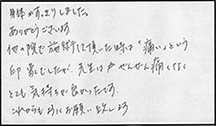 身体がすっきりしました。
ありがとうございます
他の院で施術して頂いた時は「痛い」という
印象でしたが、先生は全ぜんぜん痛くなく
とても気持ちが良かったです
これからもよろしくお願い致します